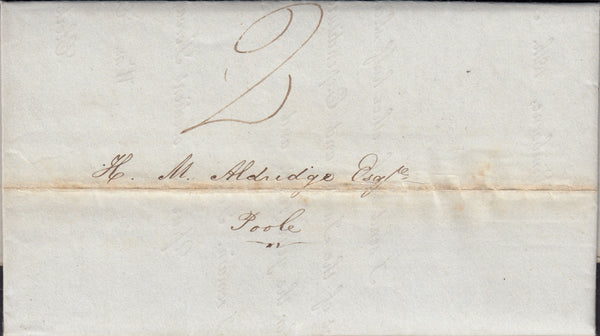 2
H. M. Aldridge Esqre
Poole